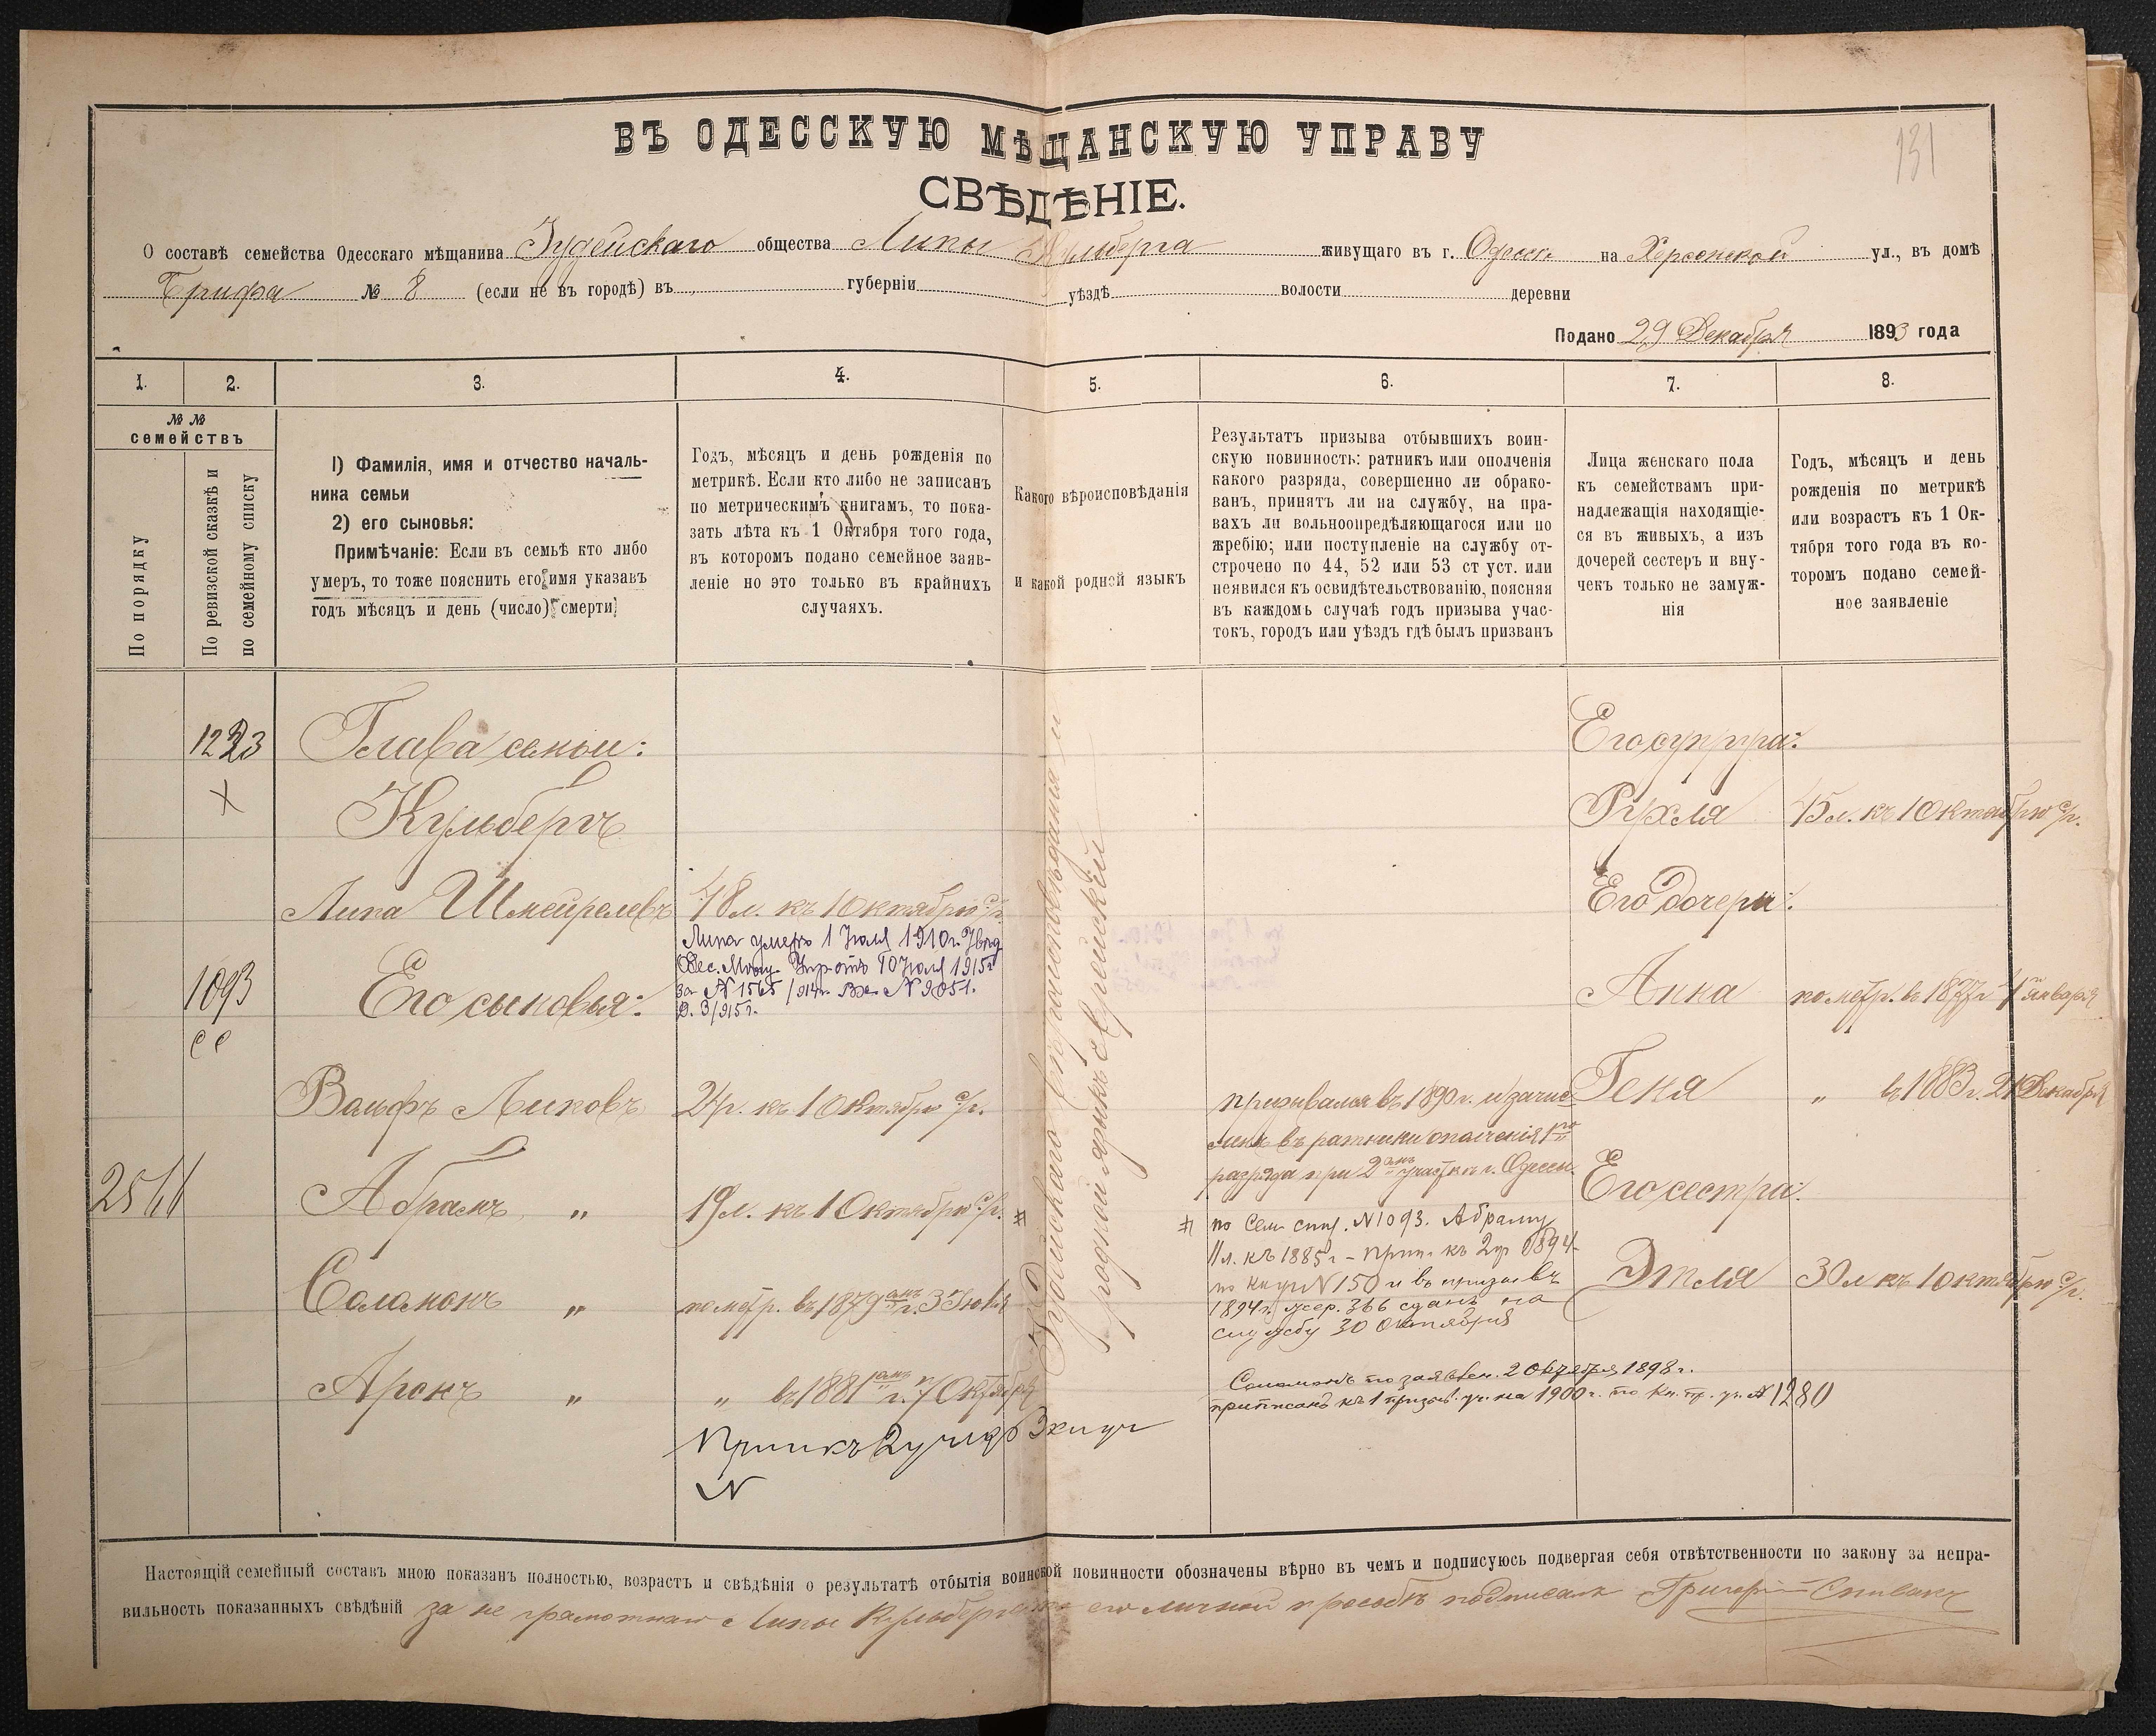 131
ВЪ ОДЕССКУЮ МѢЩАНСКУЮ УПРАВУ
СВѢДѢНІЕ.
О составѣ семейства Одесскаго мѣщанина Іудейскаго общества Липы Кульберга живущаго въ г. Одессѣ на Херсонской ул., въ домѣ
№ 8 (если не въ городѣ) въ губерніи уѣздѣ волости деревни
Подано 29 Декабря 1893 года
1. 2. 3. 4. 5. 6. 7. 8.
№ №
семействъ
По порядку
По ревизской сказкѣ и
по семейному списку
1) Фамилія, имя и отчество началь-
ника семьи
2) его сыновья:
Примѣчаніе: Если въ семьѣ кто либо
умеръ, то тоже пояснить его имя указавъ
годъ мѣсяцъ и день (число) смерти
Годъ, мѣсяцъ и день рожденія по
метрикѣ. Если кто либо не записанъ
по метрическимъ книгамъ, то пока-
зать лѣта къ 1 Октября того года,
въ которомъ подано семейное заяв-
леніе но это только въ крайнихъ
случаяхъ.
Какого вѣроисповѣданія
и какой родной языкъ
Результатъ призыва отбывшихъ воин-
скую повинность: ратникъ или ополченія
какого разряда, совершенно ли обрако-
ванъ, принятъ ли на службу, на пра-
вахъ ли вольноопредѣляющагося или по
жребію; или поступленіе на службу от-
строчено по 44, 52 или 53 ст уст. или
неявился къ освидѣтельствованію, поясняя
въ каждомъ случаѣ годъ призыва учас-
токъ, городъ или уѣздъ гдѣ былъ призванъ
Лица женскаго пола
къ семействамъ при-
надлежащія находящіе-
ся въ живыхъ, а изъ
дочерей сестеръ и вну-
чекъ только не замуж-
нія
Годъ, мѣсяцъ и день
рожденія по метрикѣ
или возрастъ къ 1 Ок-
тября того года въ ко-
торомъ подано семей-
ное заявленіе
1223
Глава семьи:
Кульбергъ
Липа Шмейрелевъ
48 л. къ 1 Октябрю с/г.
Липа умеръ 1 Іюля 1910 г.
10 Іюля 1915 г.
за № 1565 /914 г. Вх. № 9051.
Д. 3/915 г.
1093
Его сыновья:
Вольфъ Липовъ
24 г. къ 1 Октябрю с/г.
Абрамъ "
19 л. къ 1 Октябрю с/г. #
Соломонъ "
по метр. въ 1879 г. 3 Іюня
Аронъ "
" въ 1881 г. 7 Октября
Іудейскаго вѣроисповѣданія и
родной языкъ еврейскій
призывался въ 1890 г. и зачис-
ленъ въ ратники ополченія 1го
разряда при 2 участкѣ г. Одессы.
# по Сем. спис. № 1093. Абраму
11 л. къ 1885 г. – прип. къ 2 уч 1894
по № 150 и въ призывъ
1894 г. жер. 366 сданъ на
службу 30 Октября
Соломонъ по заявлен. 2 Октября 1898 г.
приписанъ къ 1 призыв. уч. на 1900 г. по кн. пр. уч. № 1280
Его супруга:
Рухля 45 л. къ 1 Октябрю с/г.
Его дочери:
Анна по метр. въ 1877 г. 4 января
Геня " въ 1883 г. 21 Декабря
Его сестра:
Этля 30 л къ 1 октябрю с/г.
№
Настоящій семейный составъ мною показанъ полностью, возрастъ и свѣдѣнія о результатѣ отбытія воинской повинности обозначены вѣрно въ чемъ и подписуюсь подвергая себя отвѣтственности по закону за непра-
вильность показанныхъ свѣдѣній за не грамотнаго Липы Кульберга по его личной просьбѣ подписалъ Григорій Спивакъ